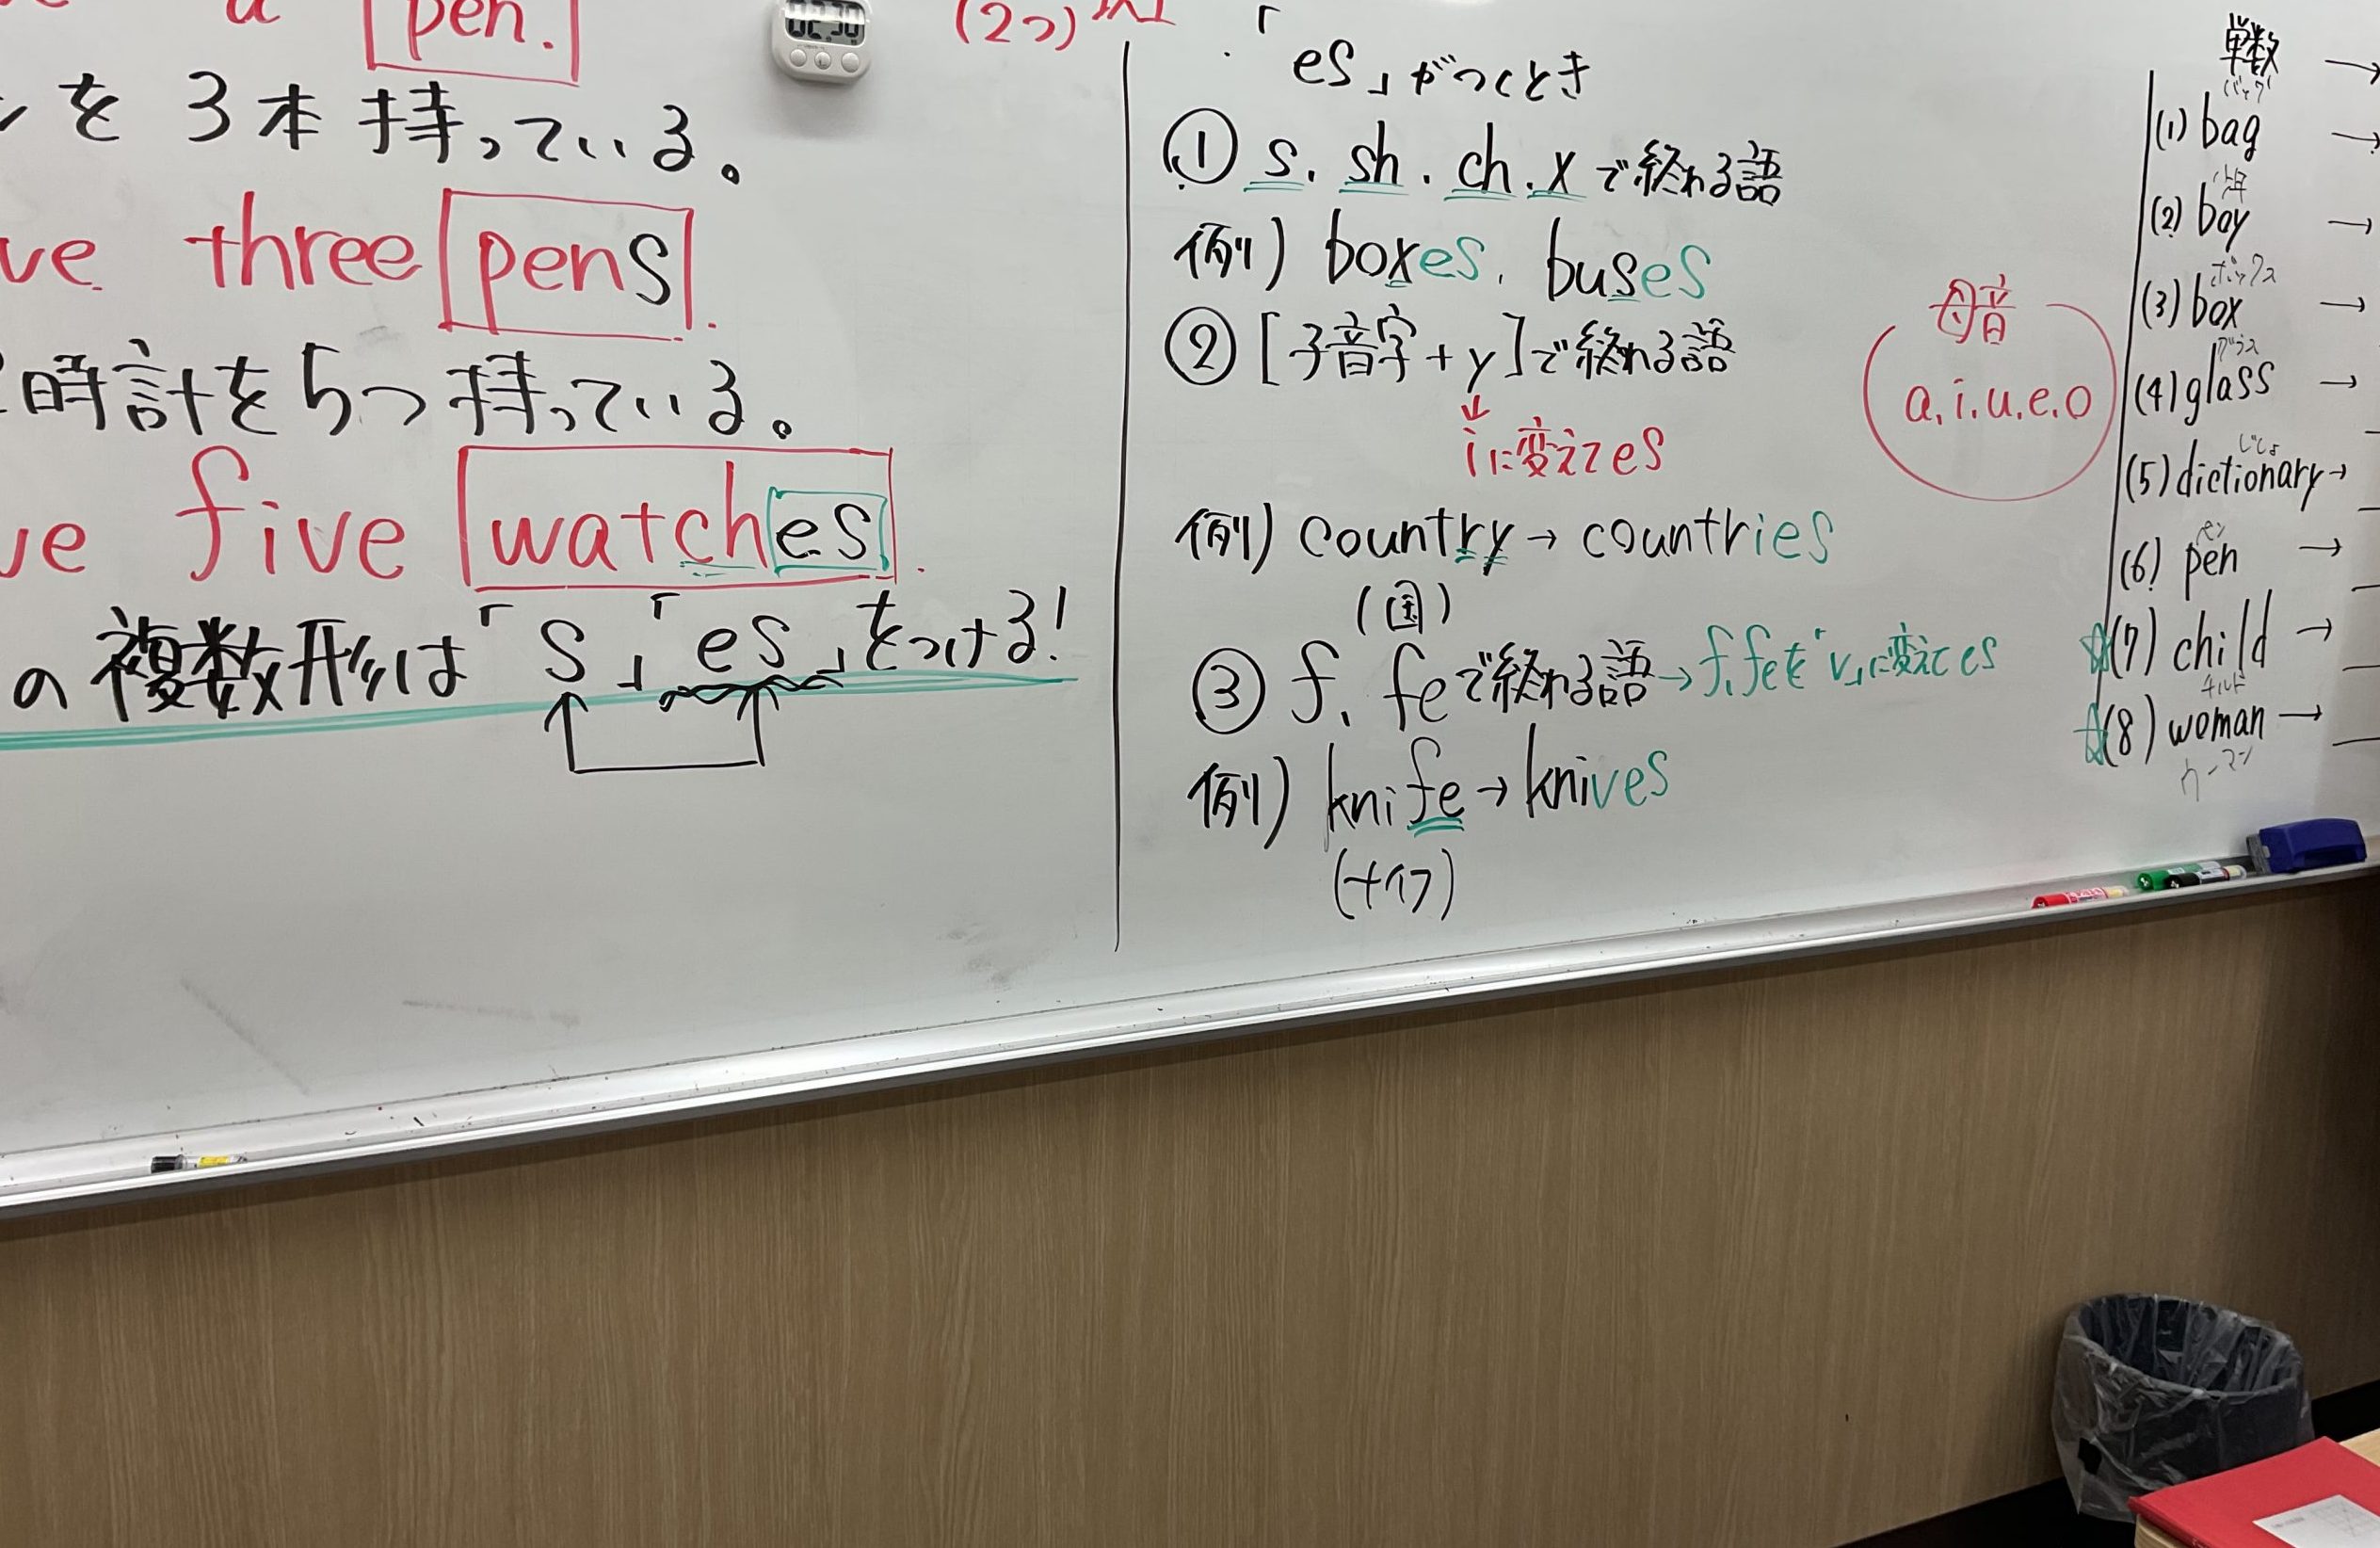 a pen.
を3本持っている。
ve three pens.
時計をらつ持っている。
ve five watches.
の複数形は「s」「es」をつける!
02:30
(2つ)以上
・「es」がつくとき
① s. sh. ch. xで終わる語
例) boxes. buses
② [子音字+y]で終わる語
↓
iに変えてes
例) country→countries
(国)
③ f. feで終わる語→f.feを「v」に変えてes
例) knife→knives
(ナイフ)
母音
a.i.u.e.o
単数 →
バッグ
(1) bag →
少年
(2) boy →
ボックス
(3) box →
グラス
(4) glass →
じしょ
(5) dictionary→
ペン
(6) pen →
☆(7) child →
チルド
☆(8) woman →
ウーマン